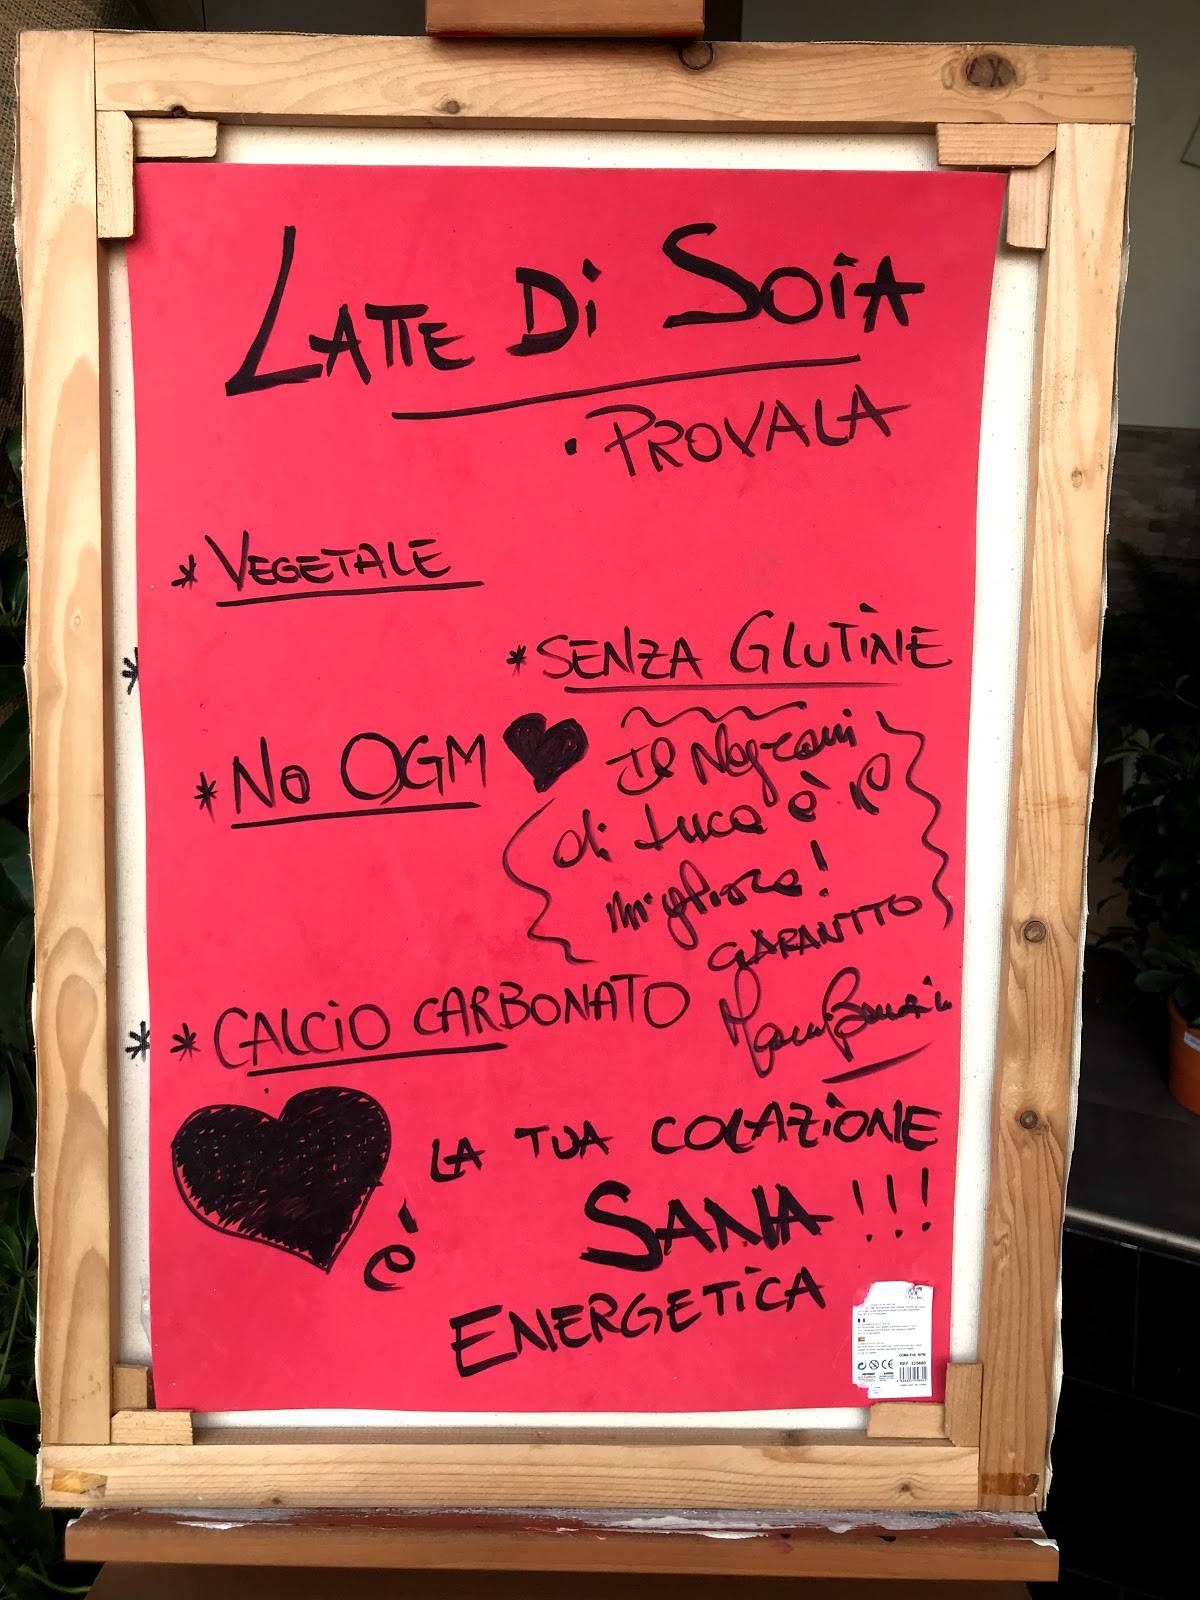 LATTE Di SOiA
• PROVALA
* VEGETALE
* SENZA GLUTINE
* No OGM
Il Negroni
di Luca è il
migliore!
GARANTITO
* CALCIO CARBONATO
è LA TUA COLAZIONE
SANA !!!
ENERGETICA
REF 325680